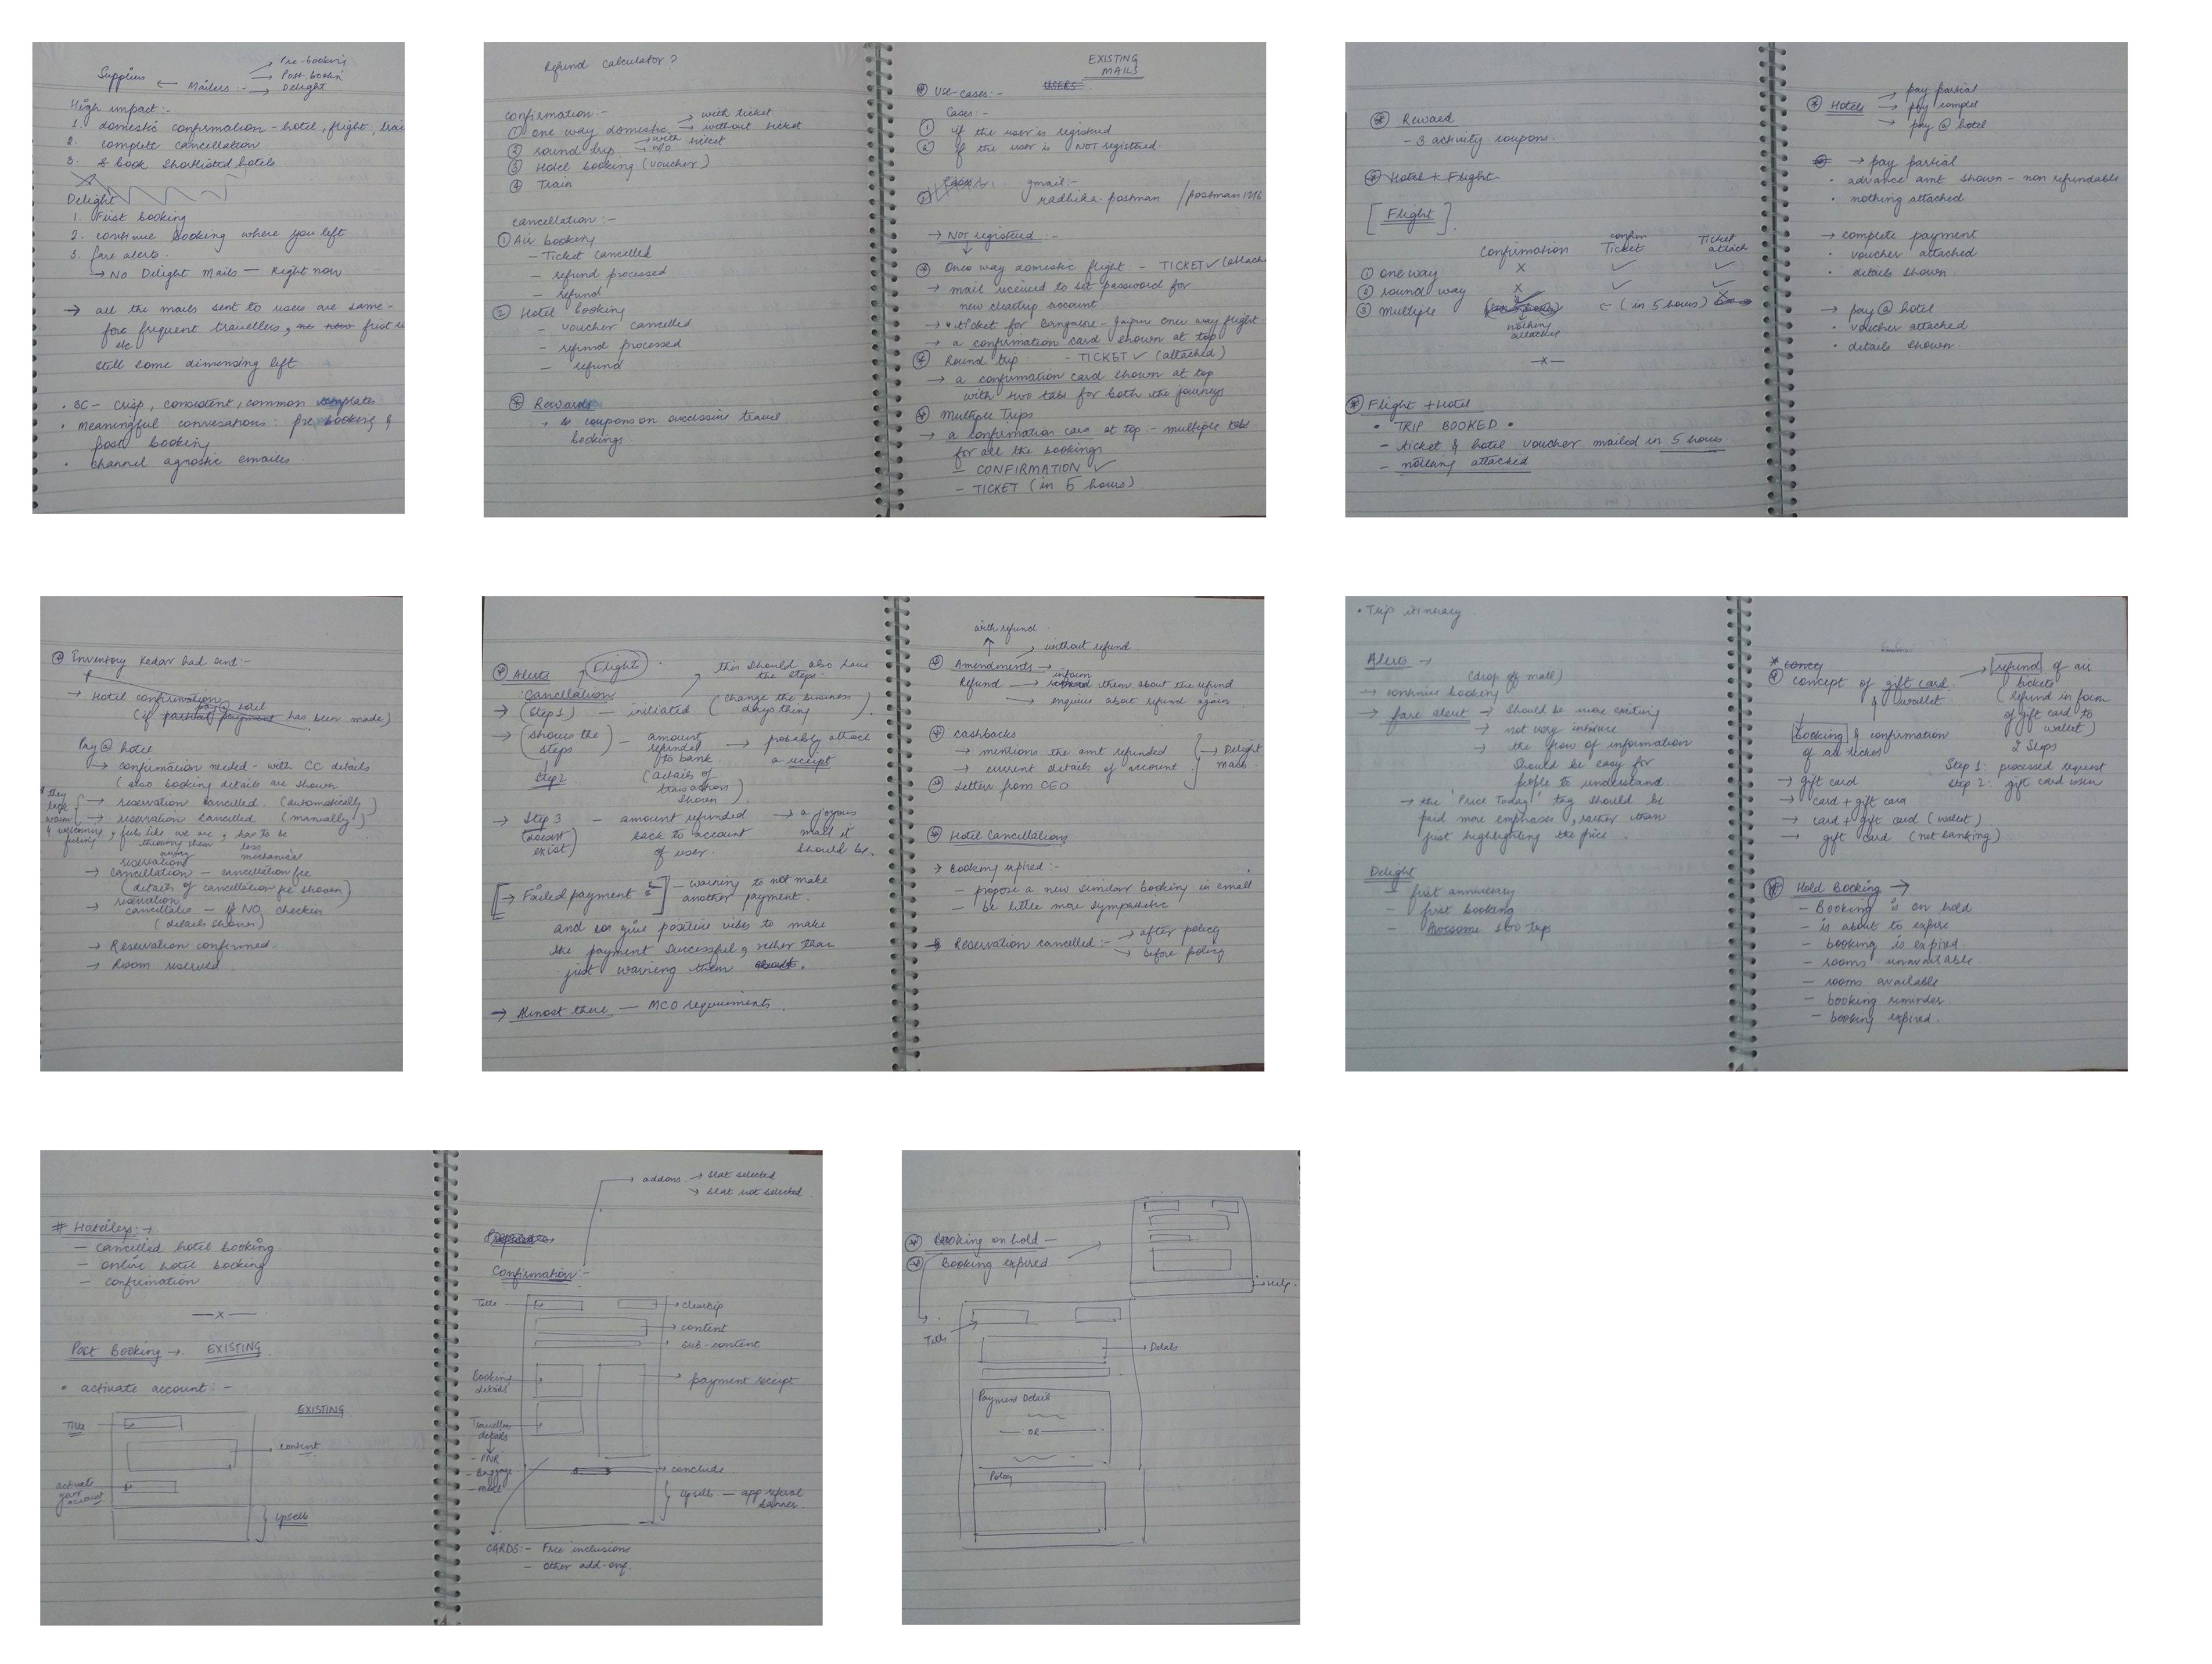 Suppliers ← Mailers :- → Pre-booking
→ Post-bookin
→ Delight
High impact :-
1. domestic confirmation - hotel, flight, trai
2. complete cancellation
3. & book shortlisted hotels
Delight
1. First booking
2. continue booking where you left
3. fare alerts.
→ No Delight Mails — Right now
→ all the mails sent to users are same -
for frequent travellers,
etc
still some dimensing left
• 3C - crisp, consistent, common templates
• Meaningful conversations: pre booking &
post booking
• channel agnostic emailes
Refund calculator?
confirmation :-
① one way domestic → with ticket
→ without ticket
② round trip → with ticket
→ w/o
③ Hotel booking (voucher)
④ Train
cancellation :-
① Air booking
- Ticket cancelled
- refund processed
- refund
② Hotel booking
- voucher cancelled
- refund processed
- refund
Rewards
→ coupons on successive travel
bookings
EXISTING
MAILS
USERS
Use-cases :-
Cases :-
① if the user is registered
② if the user is NOT registered.
gmail :-
radhika.postman / postman1216
→ NOT registered :-
→ One way domestic flight :- TICKET ✓ (attach
→ mail received to set password for
new cleartrip account
→ ticket for Bangalore - Jaipur one way flight
→ a confirmation card shown at top
Round trip :- TICKET ✓ (attached)
→ a confirmation card shown at top
with two tabs for both the journeys
Multiple Trips
→ a confirmation card at top :- multiple tabs
for all the bookings
- CONFIRMATION ✓
- TICKET (in 5 hours)
Reward
- 3 activity coupons.
Hotel + Flight
[Flight].
Confirmation confirm Ticket Ticket attach
① one way X ✓ ✓
② round way X ✓ ✓
③ multiple ← (in 5 hours) X
nothing
attached
—x—
Flight + Hotel
• TRIP BOOKED •
- ticket & hotel voucher mailed in 5 hours
- nothing attached
Hotels → pay partial
→ pay complet
→ pay @ hotel
→ pay partial
• advance amt shown - non refundable
• nothing attached
→ complete payment
• voucher attached
• details shown
→ pay @ hotel
• voucher attached
• details shown.
Inventory Kedar had sent :-
→ Hotel confirmation
pay @ hotel
(if partial payment has been made)
Pay @ hotel
→ confirmation needed - with CC details
(also booking details are shown
→ reservation cancelled (automatically)
→ reservation cancelled (manually)
they
lack
warm
& welcoming, feels like we are, has to be
feeling throwing them less
away mechanical
reservation
→ cancellation - cancellation fee
(details of cancellation fee shown)
reservation
→ cancellation - if NO checkin
(details shown)
→ Reservation confirmed.
→ Room reserved.
Alerts Flight
this should also have
the steps.
Cancellation
→ (Step 1) - initiated (change the business
days thing)
→ (shows the - amount → probably attach
steps) refunded a receipt
to bank
Step 2 (details of
transactions
shown)
→ Step 3 - amount refunded → a joyous
(doesnt back to account mail it
exist) of user. should be.
[→ Failed payment] - warning to not make
another payment.
and give positive vibes to make
the payment successful, rather than
just warning them
→ Almost there — MCO requirements.
with refund
without refund
Amendments →
inform
Refund → them about the refund
→ enquire about refund again
Cashbacks
→ mentions the amt refunded
→ current details of account
→ Delight
Mail.
Letter from CEO
Hotel Cancellations
→ Booking expired :-
- propose a new similar booking in email
- be little more sympathetic
→ Reservation cancelled :- → after policy
→ before policy
• Trip itinerary
Alerts →
(drop off mail)
→ continue booking
→ fare alert → should be more exciting
→ not very intense
→ the flow of information
should be easy for
people to understand
→ the 'Price Today' tag should be
paid more emphases, rather than
just highlighting the price.
Delight
- first anniversary
- first booking
- Awesome 100 trips
concept of gift card → refund of air
tickets
wallet
(refund in form
of gift card to
wallet)
2 Steps
booking & confirmation
of air tickets
Step 1: processed request
Step 2: gift card
→ gift card
→ card + gift card
→ card + gift card (wallet)
→ gift card (net banking)
Hold Booking →
- Booking is on hold
- is about to expire
- booking is expired.
- rooms unavailable.
- rooms available
- booking reminder.
- booking expired.
# Hoteliers :→
- cancelled hotel booking
- online hotel booking
- confirmation
—x—
Post Booking → EXISTING
• activate account :-
EXISTING
Title
content
activate
your
account
Upsells
addons → seat selected
→ seat not selected
Confirmation :-
Title
cleartrip
content
sub-content
Booking
details
payment receipt
Traveller
details
- PNR
- Baggage
- meal
conclude
Upsells — app referal
banner
CARDS :- Free inclusions
- Other add-ons.
Booking on hold -
Booking expired
help.
Title
Details
Payment Details
OR
Policy